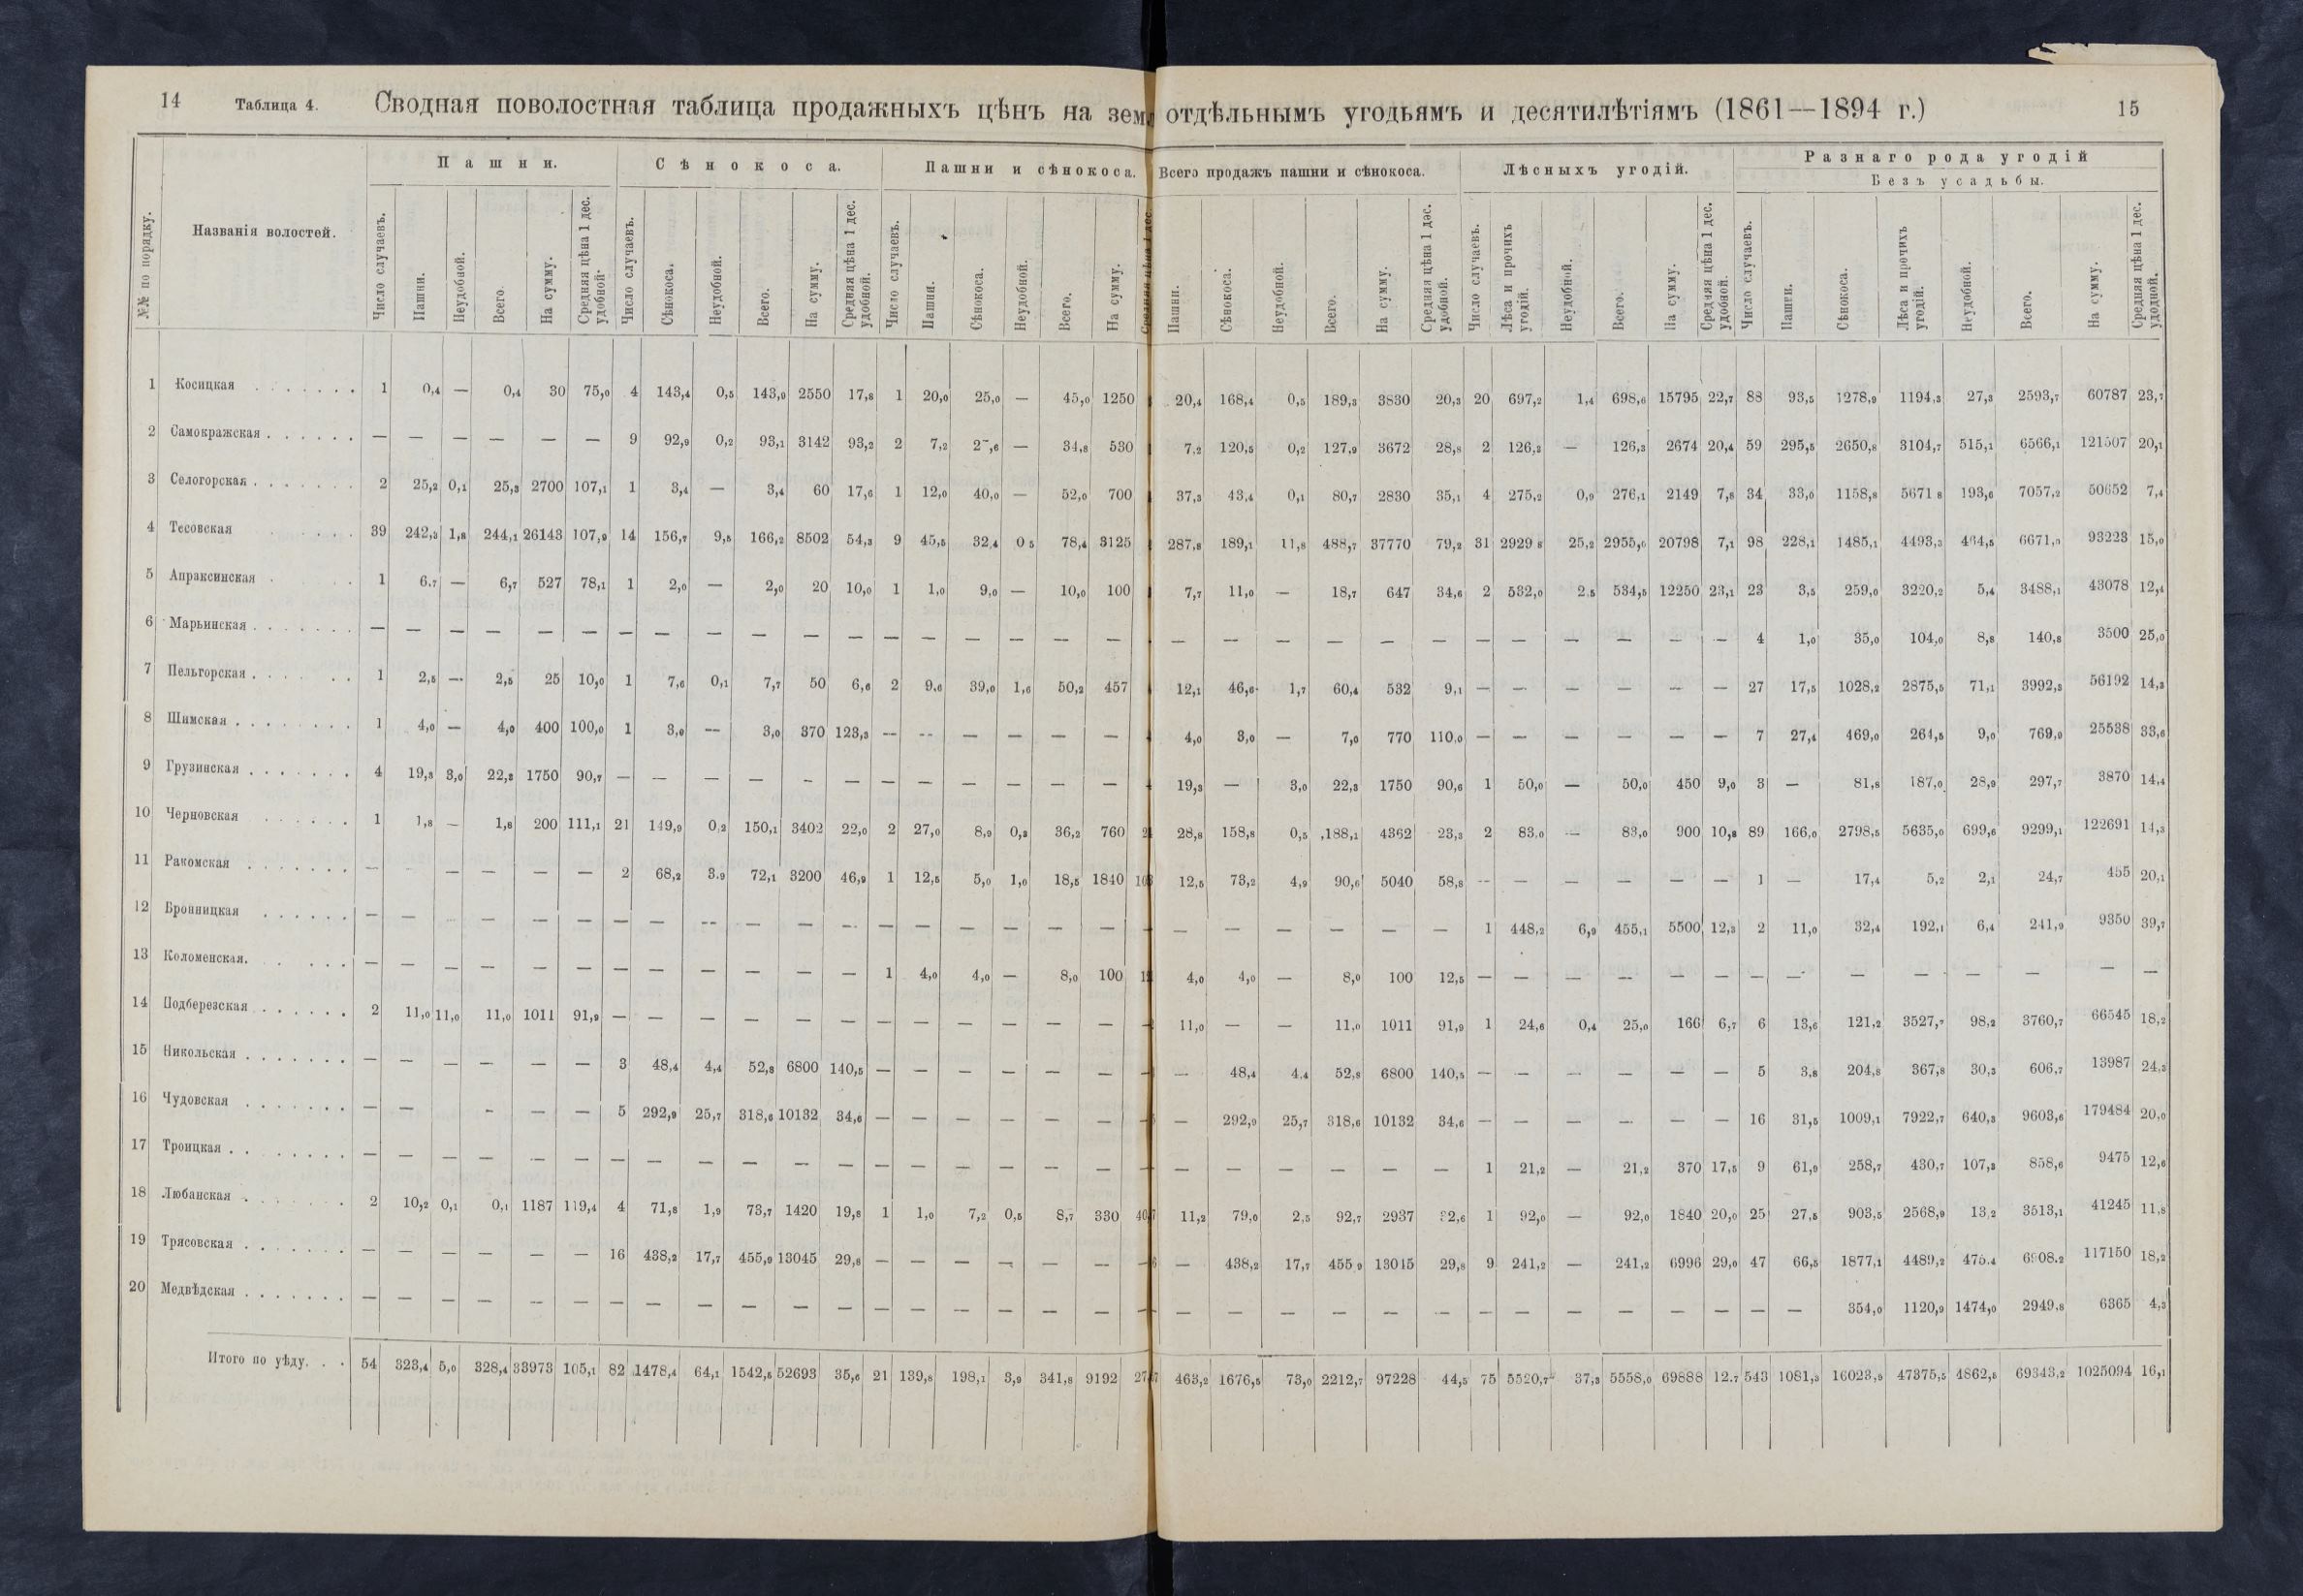 14 Таблица 4. Сводная поволостная таблица продажныхъ цѣнъ на зем отдѣльнымъ угодьямъ и десятилѣтіямъ (1861—1894 г.) 15
№№ по порядку. Названія волостей. Пашни. Сѣнокоса. Пашни и сѣнокоса. Всего продажъ пашни и сѣнокоса. Лѣсныхъ угодій. Разнаго рода угодій
Безъ усадьбы.
Число случаевъ. Пашни. Неудобной. Всего. На сумму. Средняя цѣна 1 дес. удобной. Число случаевъ. Сѣнокоса. Неудобной. Всего. На сумму. Средняя цѣна 1 дес. удобной. Число случаевъ. Пашни. Сѣнокоса. Неудобной. Всего. На сумму. Средняя цѣна 1 дес. Пашни. Сѣнокоса. Неудобной. Всего. На сумму. Средняя цѣна 1 дес. удобной. Число случаевъ. Лѣса и прочихъ угодій. Неудобной. Всего. На сумму. Средняя цѣна 1 дес. удобной. Число случаевъ. Пашни. Сѣнокоса. Лѣса и прочихъ угодій. Неудобной. Всего. На сумму. Средняя цѣна 1 дес. удобной.
1 Косицкая 1 0,4 — 0,4 30 75,0 4 143,4 0,5 143,9 2550 17,8 1 20,0 25,0 — 45,0 1250 20,4 168,4 0,5 189,3 3830 20,3 20 697,2 1,4 698,6 15795 22,7 88 93,5 1278,9 1194,3 27,3 2593,7 60787 23,7
2 Самокражская — — — — — — 9 92,9 0,2 93,1 3142 93,2 2 7,2 — 34,8 530 7,2 120,5 0,2 127,9 3672 28,8 2 126,3 — 126,3 2674 20,4 59 295,5 2650,8 3104,7 515,1 6566,1 121507 20,1
3 Селогорская 2 25,2 0,1 25,3 2700 107,1 1 3,4 — 3,4 60 17,6 1 12,0 40,0 — 52,0 700 37,3 43,4 0,1 80,7 2830 35,1 4 275,2 0,9 276,1 2149 7,8 34 33,0 1158,8 5671,8 193,6 7057,2 50652 7,4
4 Тесовская 39 242,3 1,8 244,1 26143 107,9 14 156,7 9,5 166,2 8502 54,3 9 45,5 32,4 0,5 78,4 3125 287,8 189,1 11,8 488,7 37770 79,2 31 2929,8 25,2 2955,0 20798 7,1 98 228,1 1485,1 4493,3 464,5 6671,0 93223 15,0
5 Апраксинская 1 6,7 — 6,7 527 78,1 1 2,0 — 2,0 20 10,0 1 1,0 9,0 — 10,0 100 7,7 11,0 — 18,7 647 34,6 2 532,0 2,5 534,5 12250 23,1 23 3,5 259,0 3220,2 5,4 3488,1 43078 12,4
6 Марьинская — — — — — — — — — — — — — — — — — — — — — — — — — — — — — 4 1,0 35,0 104,0 8,8 140,8 3500 25,0
7 Пельгорская 1 2,5 — 2,5 25 10,0 1 7,6 0,1 7,7 50 6,6 2 9,6 39,0 1,6 50,2 457 12,1 46,6 1,7 60,4 532 9,1 — — — — — — 27 17,5 1028,2 2875,5 71,1 3992,3 56192 14,3
8 Шимская 1 4,0 — 4,0 400 100,0 1 3,0 — 3,0 370 123,3 — — — — — — 4,0 3,0 — 7,0 770 110,0 — — — — — — 7 27,4 469,0 264,5 9,0 769,9 25538 33,6
9 Грузинская 4 19,3 3,0 22,3 1750 90,7 — — — — — — — — — — — — 19,3 — 3,0 22,3 1750 90,6 1 50,0 — 50,0 450 9,0 3 — 81,8 187,0 28,9 297,7 3870 14,4
10 Черновская 1 1,8 — 1,8 200 111,1 21 149,9 0,2 150,1 3402 22,0 2 27,0 8,9 0,3 36,2 760 28,8 158,8 0,5 188,1 4362 23,3 2 83,0 — 83,0 900 10,8 89 166,0 2798,5 5635,0 699,6 9299,1 122691 14,3
11 Ракомская — — — — — 2 68,2 3,9 72,1 3200 46,9 1 12,5 5,0 1,0 18,5 1840 12,5 73,2 4,9 90,6 5040 58,8 — — — — — — 1 — 17,4 5,2 2,1 24,7 455 20,1
12 Бронницкая — — — — — — — — — — — — — — — — — — — — — — — — 1 448,2 6,9 455,1 5500 12,3 2 11,0 32,4 192,1 6,4 241,9 9350 39,7
13 Коломенская. — — — — — — — — — — — — 1 4,0 4,0 — 8,0 100 4,0 4,0 — 8,0 100 12,5 — — — — — — — — — — — — — —
14 Подберезская 2 11,0 11,0 11,0 1011 91,9 — — — — — — — — — — — — 11,0 — — 11,0 1011 91,9 1 24,6 0,4 25,0 166 6,7 6 13,6 121,2 3527,7 98,2 3760,7 66545 18,2
15 Никольская — — — — — — 3 48,4 4,4 52,8 6800 140,5 — — — — — — — 48,4 4,4 52,8 6800 140,5 — — — — — — 5 3,8 204,8 367,8 30,3 606,7 13987 24,3
16 Чудовская — — — — — 5 292,9 25,7 318,6 10132 34,6 — — — — — — — 292,9 25,7 318,6 10132 34,6 — — — — — — 16 31,5 1009,1 7922,7 640,3 9603,6 179484 20,0
17 Троицкая — — — — — — — — — — — — — — — — — — — — — — — — 1 21,2 — 21,2 370 17,5 9 61,9 258,7 430,7 107,3 858,6 9475 12,6
18 Любанская 2 10,2 0,1 0,1 1187 119,4 4 71,8 1,9 73,7 1420 19,8 1 1,0 7,2 0,5 8,7 330 11,2 79,0 2,5 92,7 2937 32,6 1 92,0 — 92,0 1840 20,0 25 27,5 903,5 2568,9 13,2 3513,1 41245 11,8
19 Трясовская — — — — — — 16 438,2 17,7 455,9 13045 29,8 — — — — — — — 438,2 17,7 455,9 13015 29,8 9 241,2 — 241,2 6996 29,0 47 66,5 1877,1 4489,2 475,4 6908,2 117150 18,2
20 Медвѣдская — — — — — — — — — — — — — — — — — — — — — — — — — — — — — — — — 354,0 1120,9 1474,0 2949,8 6365 4,3
Итого по уѣду. 54 323,4 5,0 328,4 33973 105,1 82 1478,4 64,1 1542,5 52693 35,6 21 139,8 198,1 3,9 341,8 9192 463,2 1676,5 73,0 2212,7 97228 44,5 75 5520,7 37,3 5558,0 69888 12,7 543 1081,3 16023,9 47375,5 4862,5 69343,2 1025094 16,1